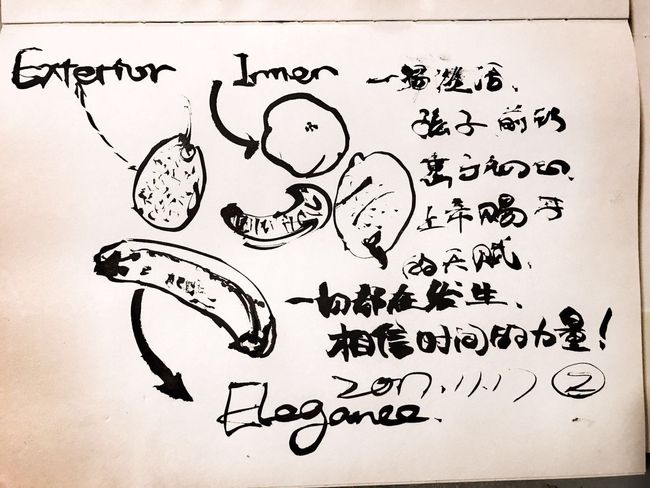 Exterior
Inner
孩子
上帝赐予
的天赋、
一切都在发生、
相信时间的力量！
2017.11.17 ②
Elegance.